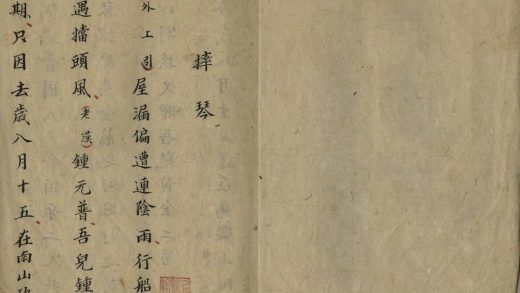 摔琴
外上引屋漏偏遭連陰雨行船
遇擋頭風老漢鍾元普吾兒鍾
期只因去歲八月十五在南山